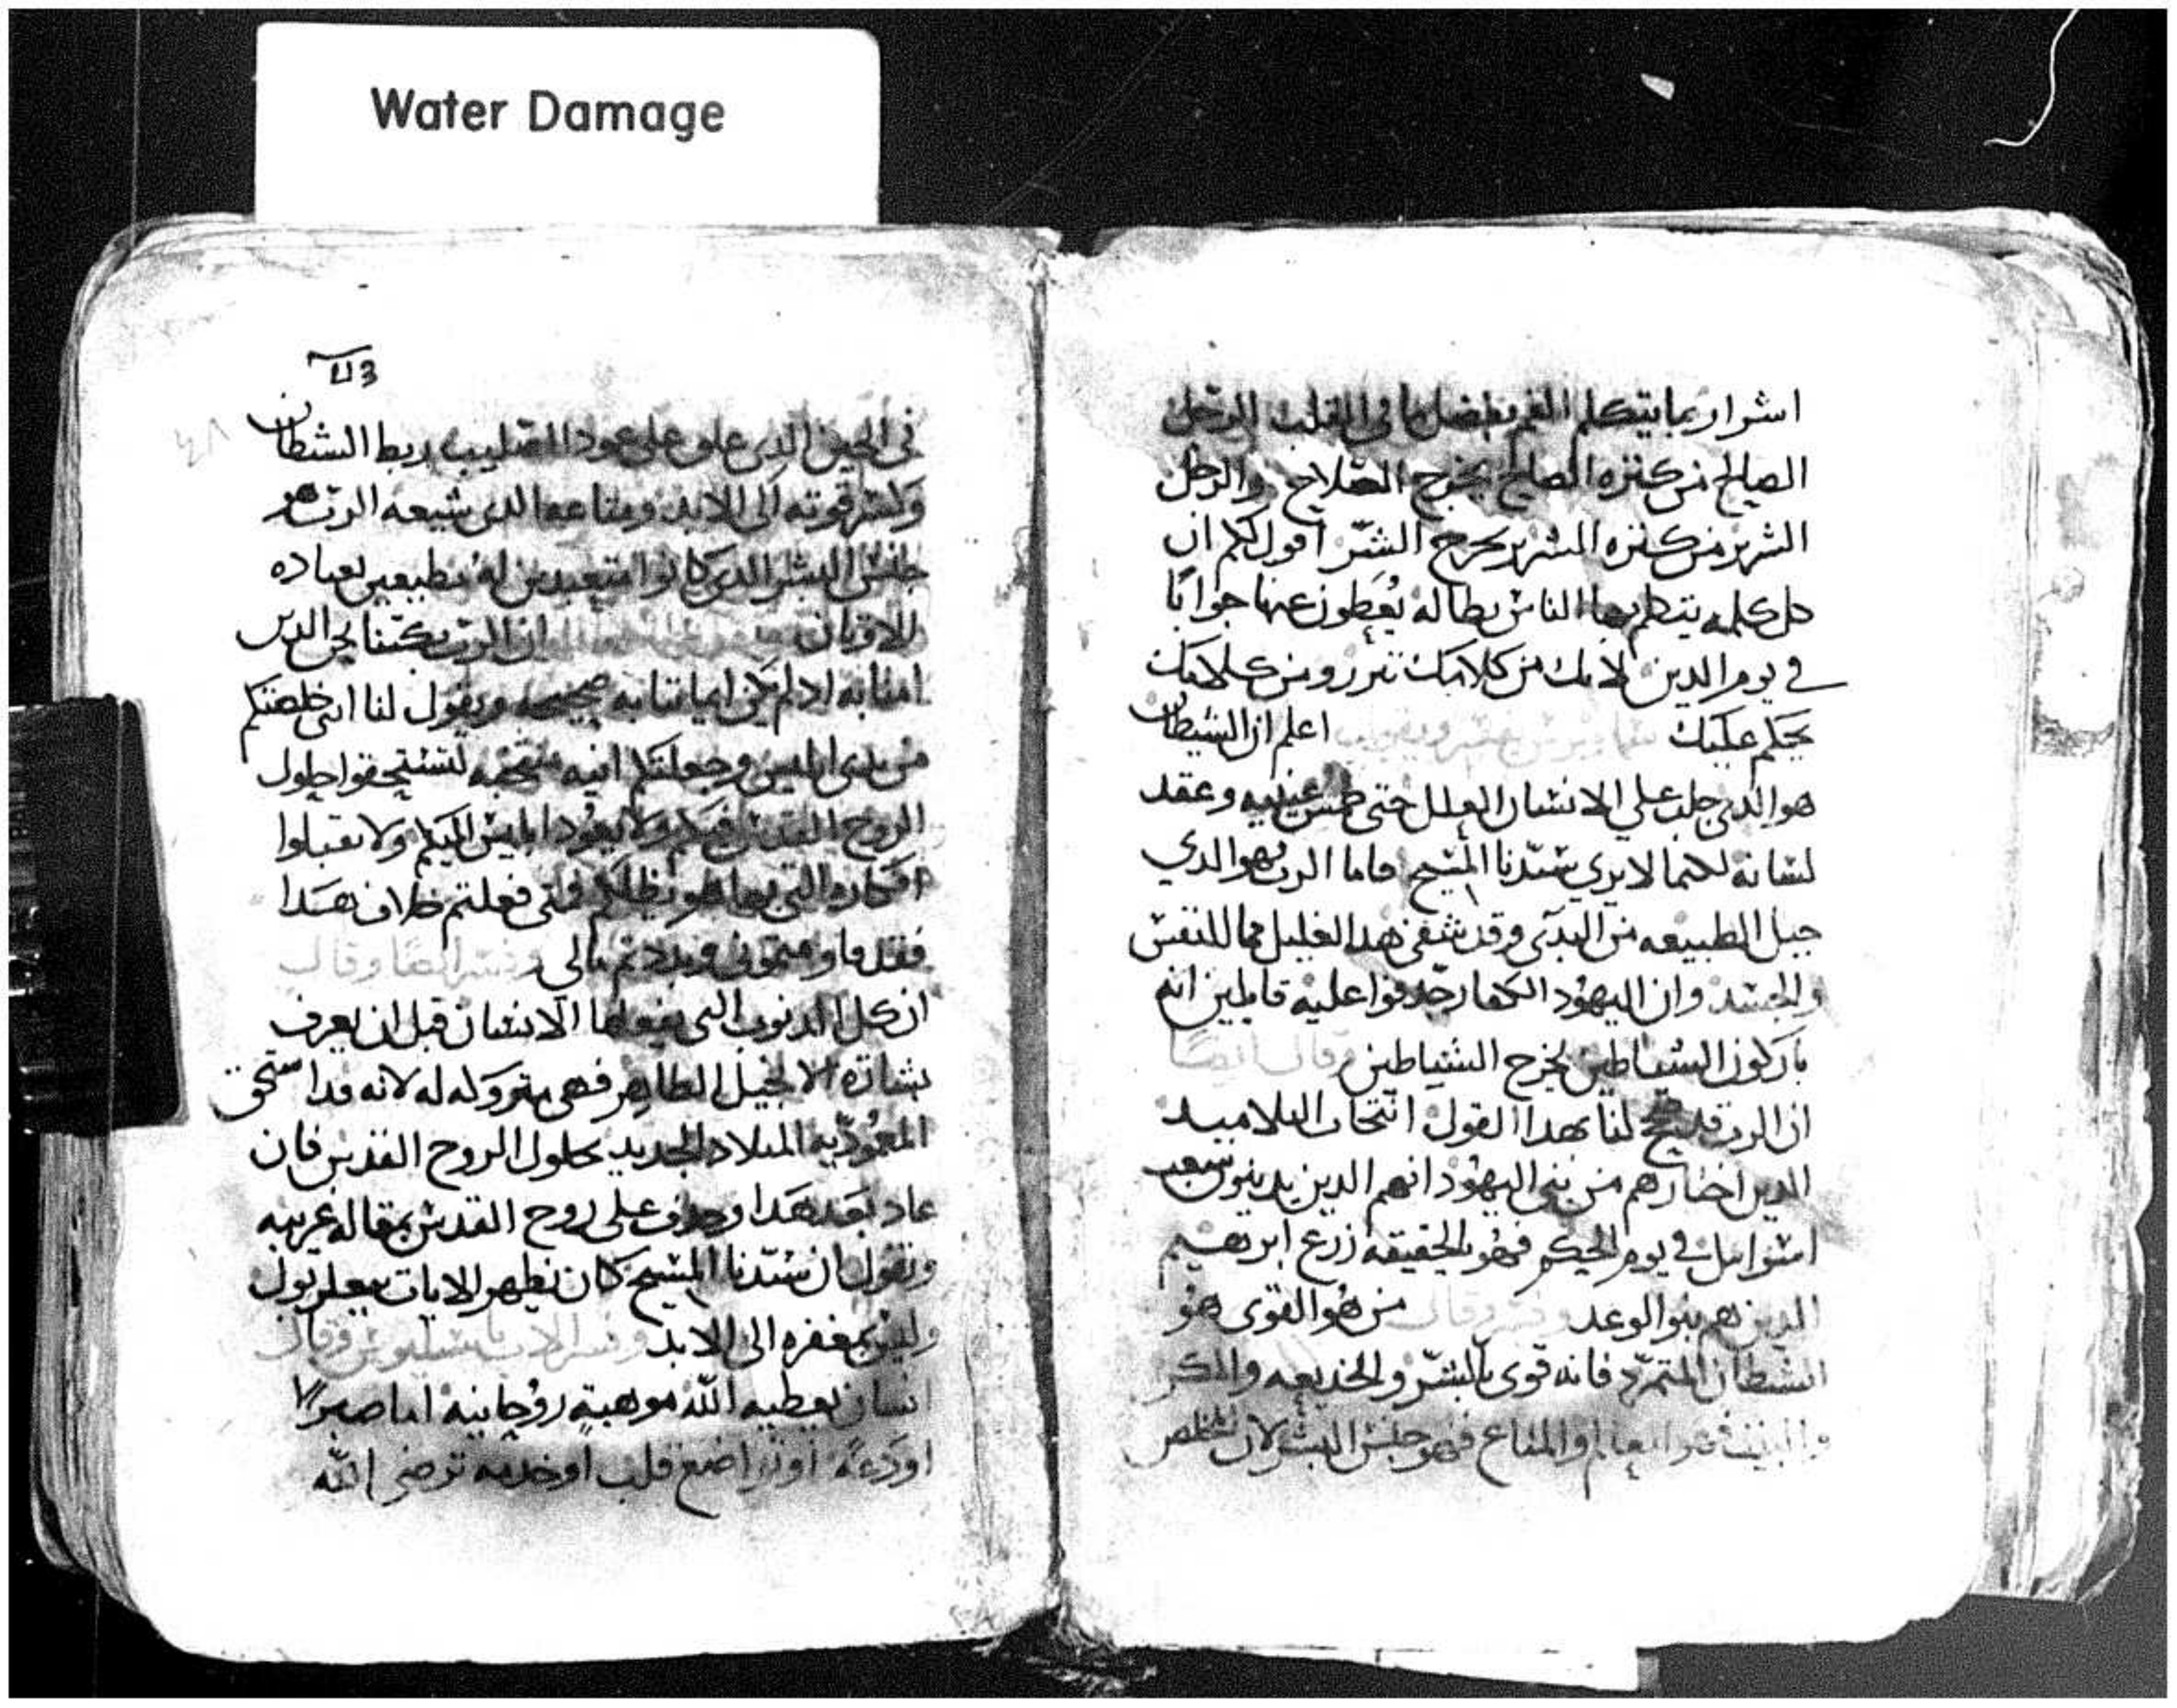 Water Damage
اشرار بما يتكلم الفم بفضل ما في القلب الرجل
الصالح من كنزه الصالح يخرج الصلاح والرجل
الشرير من كنزه الشرير يخرج الشر اقول لكم ان
كل كلمه يتكلم بها الناس بطاله يعطون عنها جوابًا
في يوم الدين لانك من كلامك تبرر ومن كلامك
يحكم عليك اعلم ان الشيطان
هو الدي جلب علي الانسان العلل حتى طمس عينيه وعقد
لسانه لكيما لا يري سيدنا المسيح فاما الرب فهو الدي
جبل الطبيعه من البدى وقد شفى هدا العليل مما للنفس
والجسد وان اليهود الكفار جدفوا عليه قايلين انه
باركون الشياطين يخرج الشياطين وقال ايضًا
ان الرب لنا بهدا القول انتخاب التلاميد
الدين اختارهم من بنى اليهود انهم الدين يدينون شعب
اسراييل في يوم الحكم فهو بالحقيقه زرع ابرهيم
الدين هم بنو الوعد وفسر وقال من هو القوى هو
الشطان المتمرد فانه قوى بالشر والخديعه والمكر
والبيت هو العالم والمتاع فهو جنس البشر لان المخلص
٦٣
٤٨
فى الحين الدى علق على عود الصليب ربط الشطان
وكسر قوته الى الابد ومتاعه الدى سيبه الرب هو
جنس البشر الدى كانوا متعبدين له مطيعين بعباده
للاوثان ان الرب يبكتنا نحن الدين
امنا به ادا لم تكن امانتنا به صحيحه ويقول لنا انى خلصتكم
من يدى ابليس وجعلتكم انيه لتستحقوا حلول
الروح القدس فيكم ولا يعود ابليس اليكم ولا تقبلوا
افكاره التى بها فمتى فعلتم خلاف هدا
فقد قاومتمونى وفسر ايضًا وقال
ان كل الدنوب التى يفعلها الانسان قبل ان يعرف
بشارة الانجيل الطاهر فهى متروكه له لانه قد استحق
المعموديه الميلاد الجديد بحلول الروح القدس فان
عاد بعد هدا وجدف على روح القدس بمقاله غريبه
ويقول ان سيدنا المسيح كان يظهر الايات ببعلزبول
وليس بمغفره الى الابد وفسر الاب باسيليوس وقال
انسان يعطيه الله موهبة روحانيه اما صبرًا
او دعة او تواضع قلب او خدمه ترضى الله